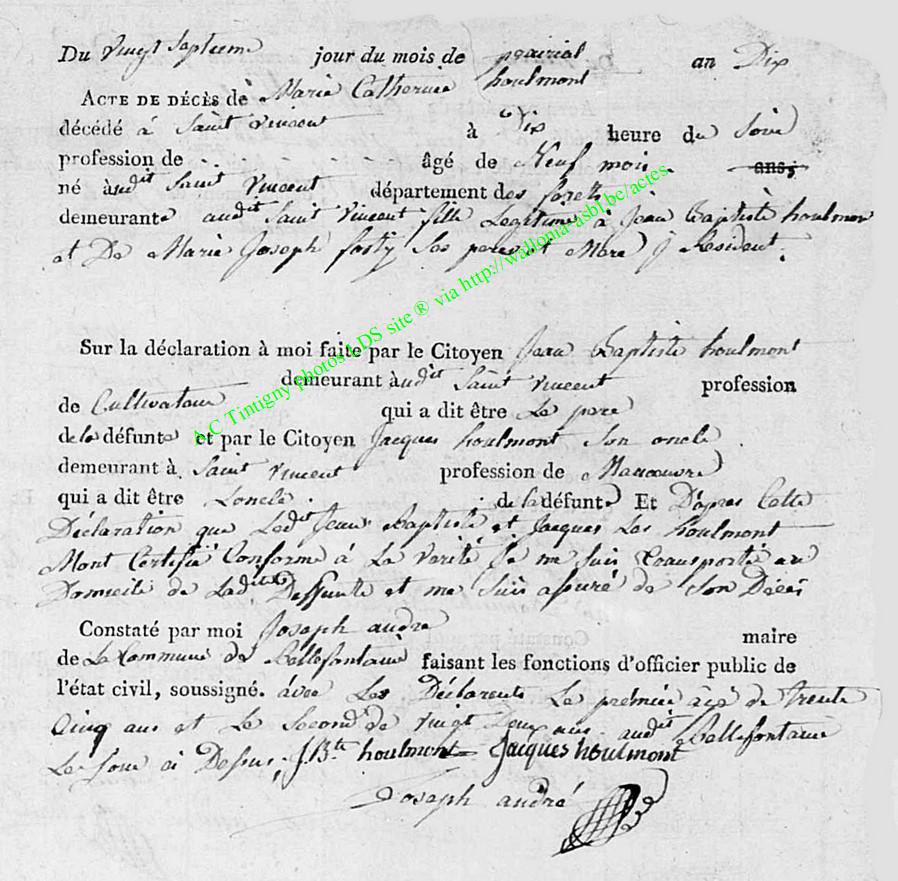 Du vingt septieme jour du mois de prairial an Dix
ACTE DE DÉCÈS de Marie Catherine houlmont
décédé à Saint vincent à Dix heure du Soire
profession de . . . . . . . âgé de Neuf mois. ans;
né àudit Saint Vincent département des forets
demeurante audit Saint Vincent fille Legitime à Jean Baptiste houlmon
et De Marie Joseph forty Ses pere et Mere y Resident.
Sur la déclaration à moi faite par le Citoyen Jean Baptiste houlmont
demeurant àudit Saint Vincent profession
de Cultivateur qui a dit être Le pere
de la défunte et par le Citoyen Jacques houlmont Son oncle
demeurant à Saint Vincent profession de Manoeuvre
qui a dit être Loncle. de la défunte Et D'apres Cette
Déclaration que Ledit Jean Baptiste et Jacques Les houlmont
Mont Certifié Conforme à La verité Je me Suis transporté au
Domicile de Ladite Deffunte et me Suis assuré de Son Décès
Constaté par moi Joseph andre maire
de La Commune de Bellefontaine faisant les fonctions d'officier public de
l'état civil, soussigné. avec Les Déclarents Le premier age de trente
Cinq ans et Le Second de vingt Deux ans audit Bellefontaine
Le Jour à Dessus, J Bte houlmont Jacques houlmont
Joseph andré
A.C Tintigny photos ADS site ® via http://wallonia-asbl.be/actes